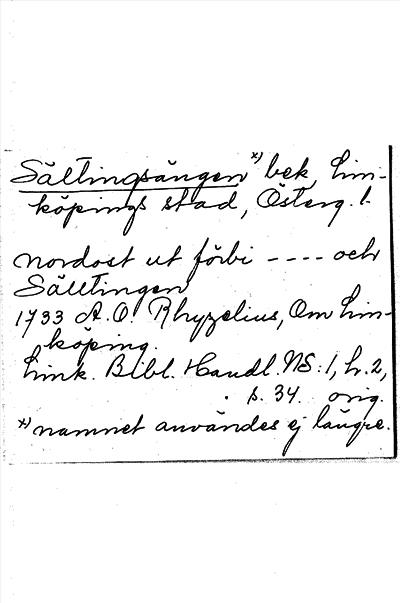 Sältingsängen x) bek, Lin-
köpings stad, Österg. l.
nordost ut förbi ---- och
Sälltingen
1733 A.O. Rhyzelius, Om Lin-
köping.
Link. Bibl. Handl. NS:1, h.2,
s. 34. orig.
x) namnet användes ej längre.